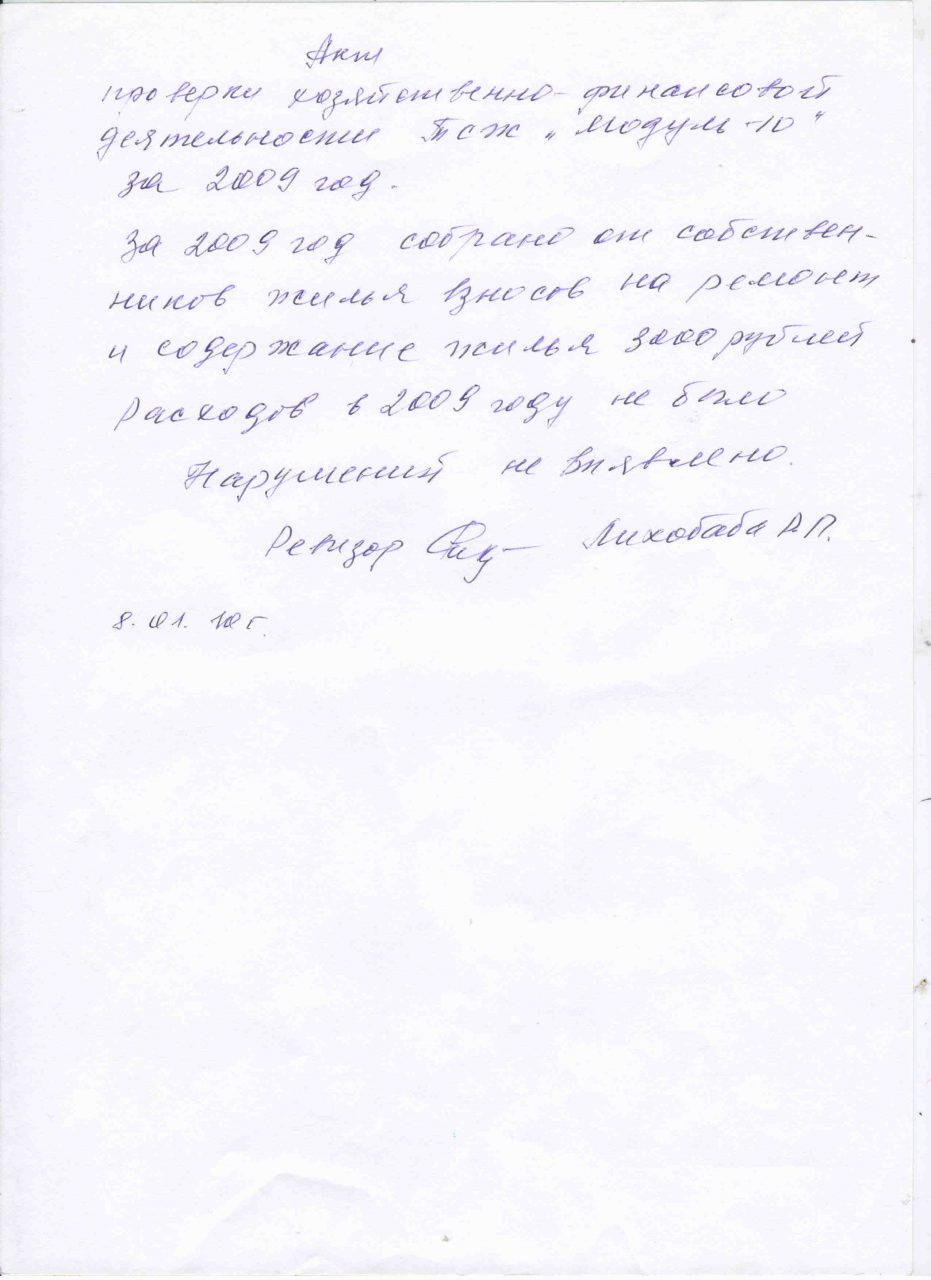 Акт
проверки хозяйственно-финансовой
деятельности ТСЖ „Модуль-10"
за 2009 год.
За 2009 год собрано от собствен-
ников жилья взносов на ремонт
и содержание жилья 3000 рублей
Расходов в 2009 году не было
Нарушений не выявлено.
Ревизор Лихобаба А.П.
8.01.10г.